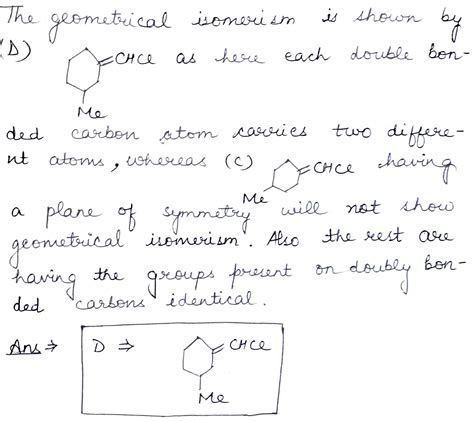 The geometrical isomerism is shown by
(D) CHCl as here each double bon-
Me
ded carbon atom carries two differe-
nt atoms, whereas (C) CHCl having
Me
a plane of symmetry will not show
geometrical isomerism. Also the rest are
having the groups present on doubly bon-
ded carbons identical.
Ans ⇒ D ⇒ CHCl
Me